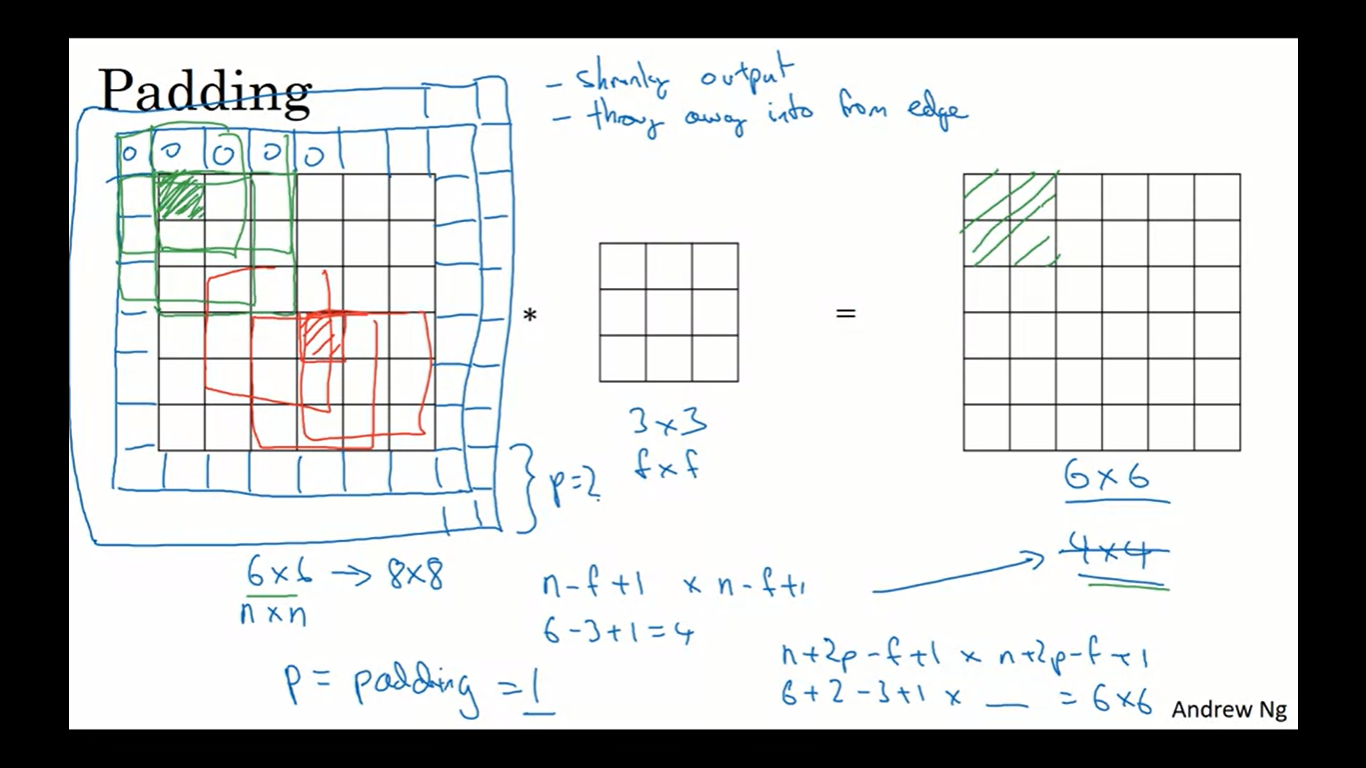 Padding
- shrinky output
- throw away info from edge
0 0 0 0 0
*
=
3×3
f×f
p=2
6×6
4×4
6×6 → 8×8
n×n
n-f+1 × n-f+1
6-3+1=4
p = padding = 1
n+2p-f+1 × n+2p-f+1
6+2-3+1 × __ = 6×6
Andrew Ng